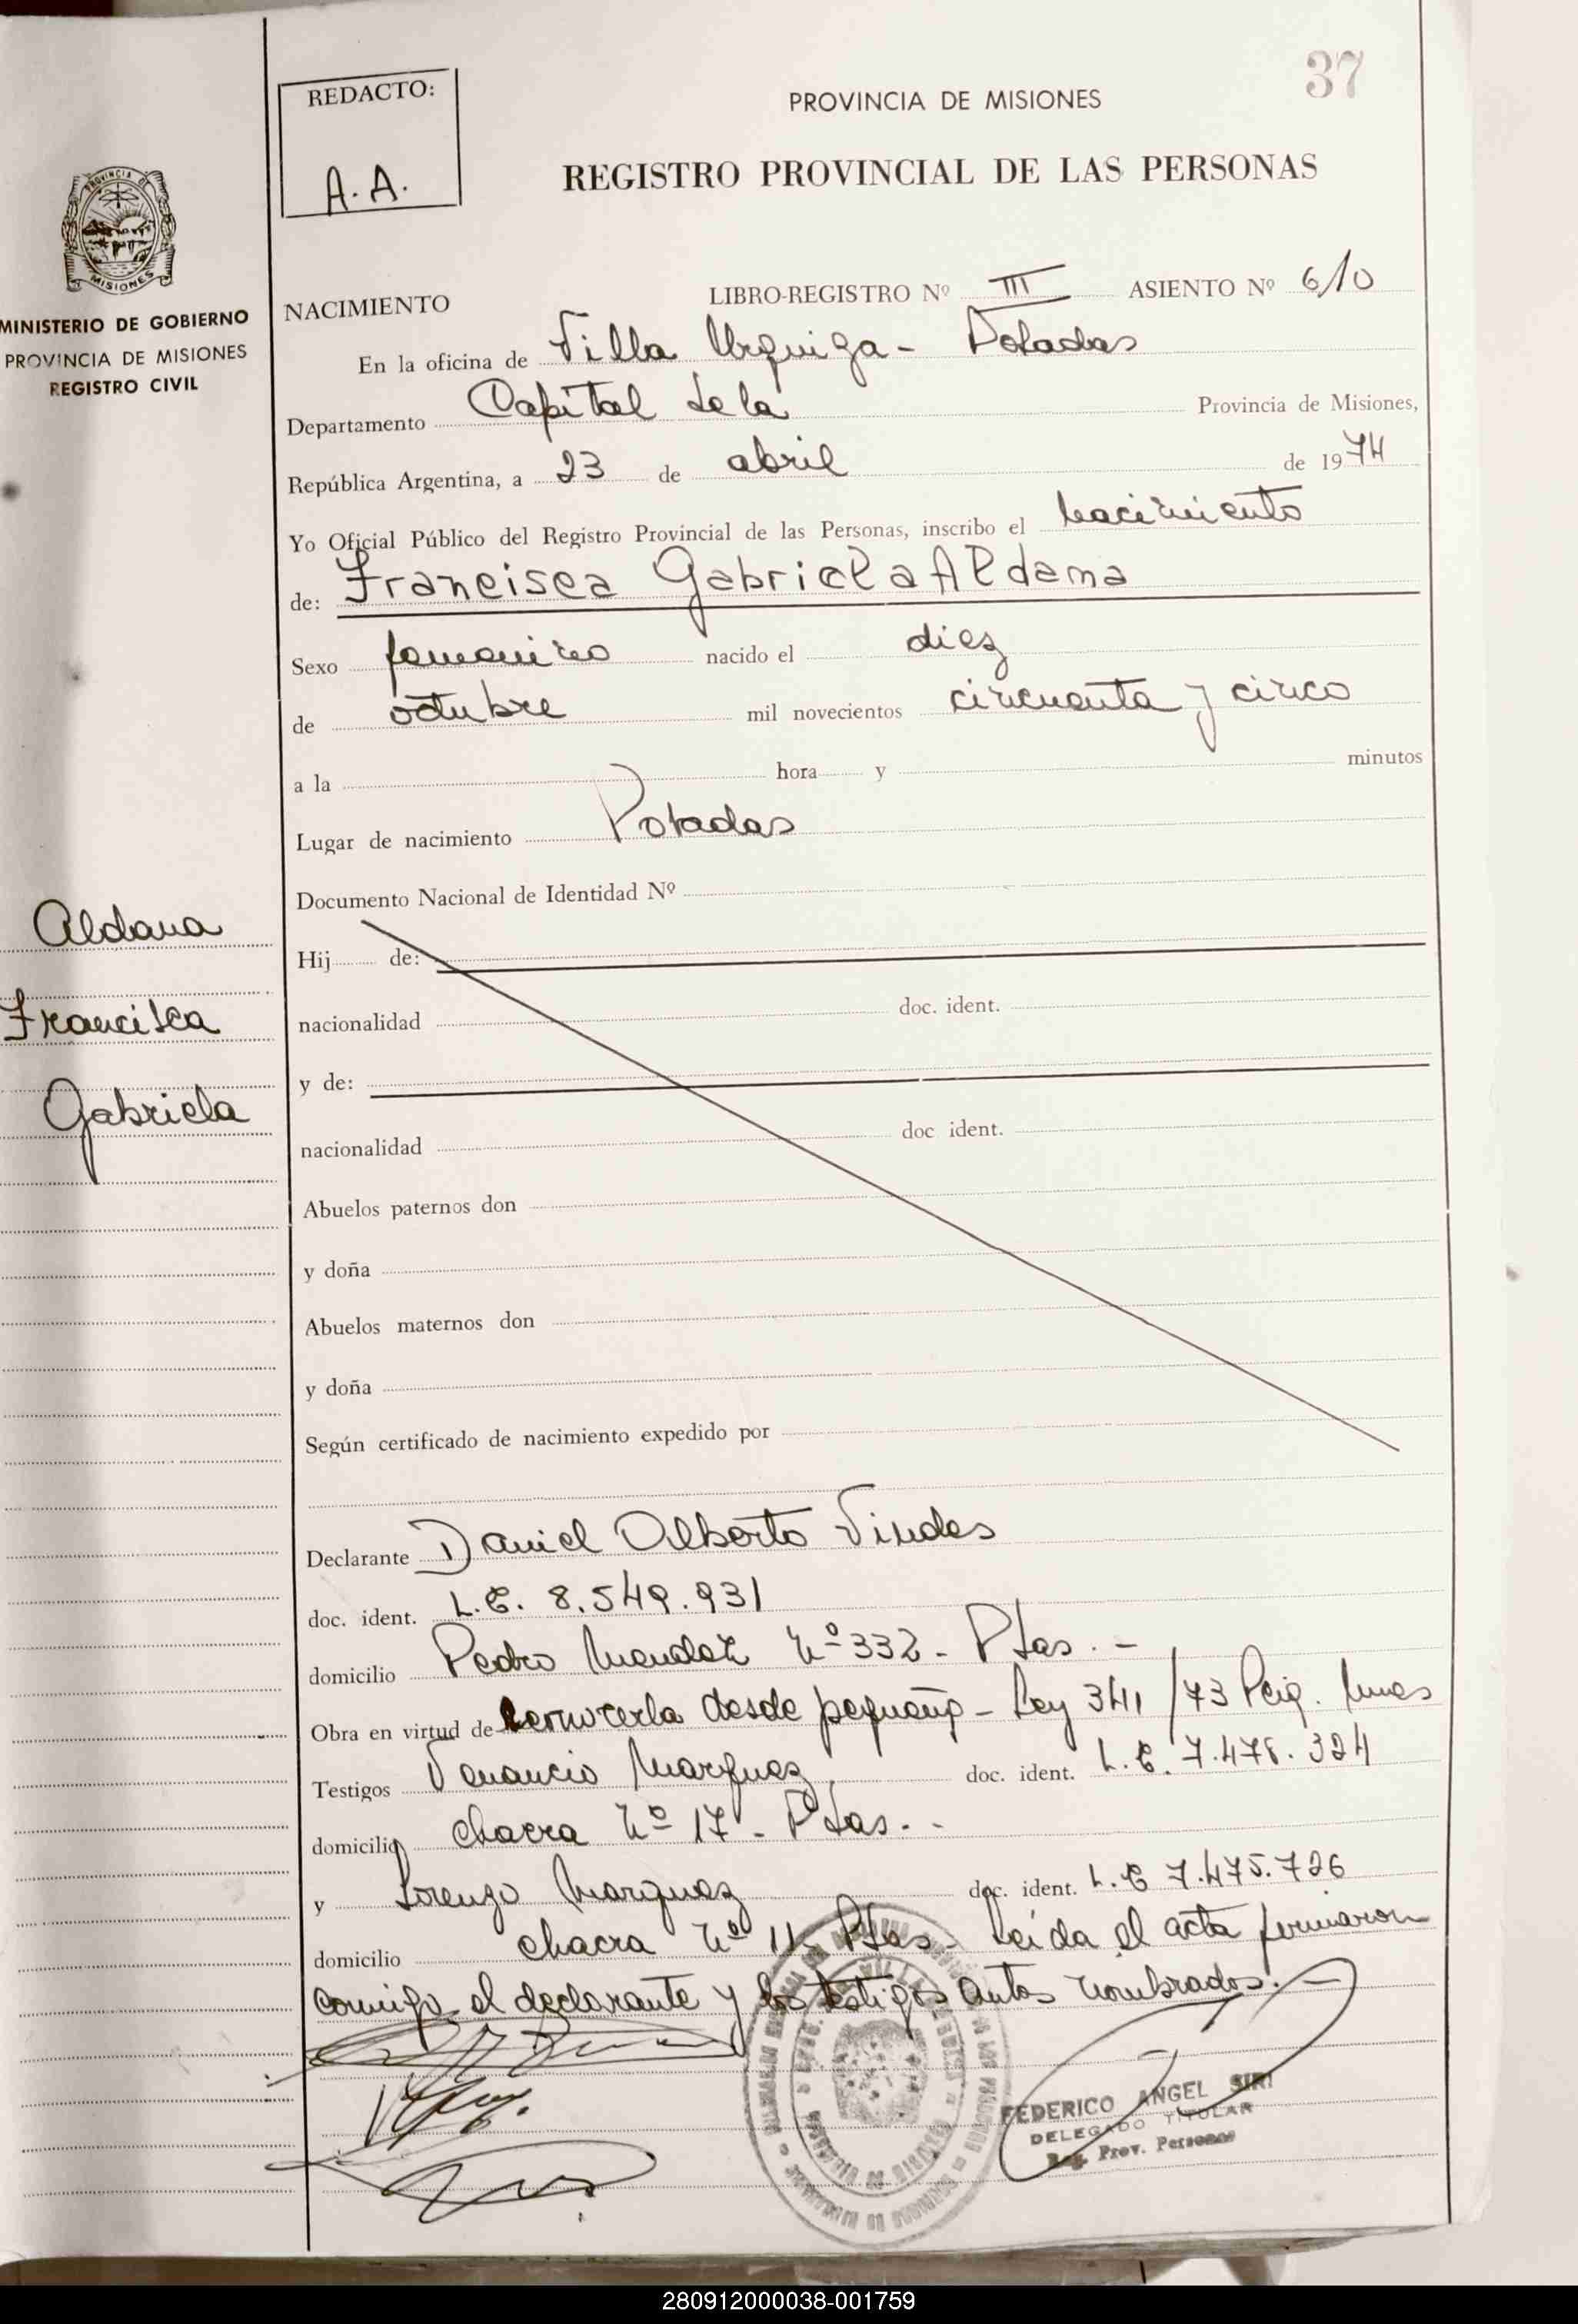 37
REDACTO:
A. A.
PROVINCIA DE MISIONES
REGISTRO PROVINCIAL DE LAS PERSONAS
MISIONES
MINISTERIO DE GOBIERNO
PROVINCIA DE MISIONES
REGISTRO CIVIL
NACIMIENTO LIBRO-REGISTRO Nº III ASIENTO Nº 610
En la oficina de Villa Urquiza - Posadas
Departamento Capital de la Provincia de Misiones,
República Argentina, a 23 de abril de 1974
Yo Oficial Público del Registro Provincial de las Personas, inscribo el nacimiento
de: Francisca Gabriela Aldana
Sexo femenino nacido el diez
de octubre mil novecientos cincuenta y cinco
a la hora y minutos
Lugar de nacimiento Posadas
Documento Nacional de Identidad Nº
Aldana
Francisca
Gabriela
Hij de:
nacionalidad doc. ident.
y de:
nacionalidad doc ident.
Abuelos paternos don
y doña
Abuelos maternos don
y doña
Según certificado de nacimiento expedido por
Declarante Daniel Alberto Vindes
doc. ident. L.E. 8.549.931
domicilio Pedro Mendez Nº 332 - Pdas. -
Obra en virtud de conocerla desde pequeña - Ley 341/73
Testigos Venancio Marquez doc. ident. L.E. 7.478.324
domicilio chacra Nº 17 - Pdas. -
y Lorenzo Marquez doc. ident. L.E 7.475.726
domicilio chacra Nº 11 Pdas. Leída el acta firmaron
conmigo el declarante y los testigos antes nombrados. -
FEDERICO ANGEL SIRI
DELEGADO TITULAR
Reg. Prov. Personas
280912000038-001759